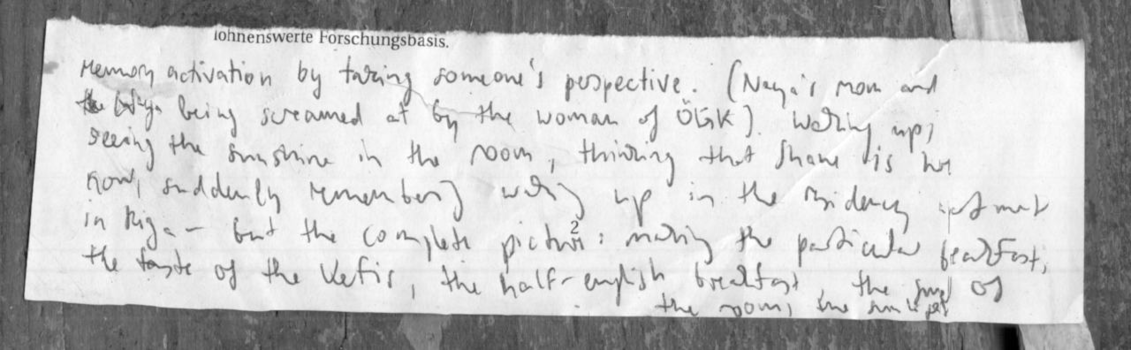 lohnenswerte Forschungsbasis.
Memory activation by taking someone's perspective. (Naya's mom and
Naya being screamed at by the woman of ÖGK). Waking up,
seeing the sunshine in the room, thinking that Shane is here
now, suddenly remembering waking up in the residency apartment
in Riga – but the complete picture: making the particular breakfast,
2
the taste of the Kefir, the half-english breakfast, the smell of
the room, the